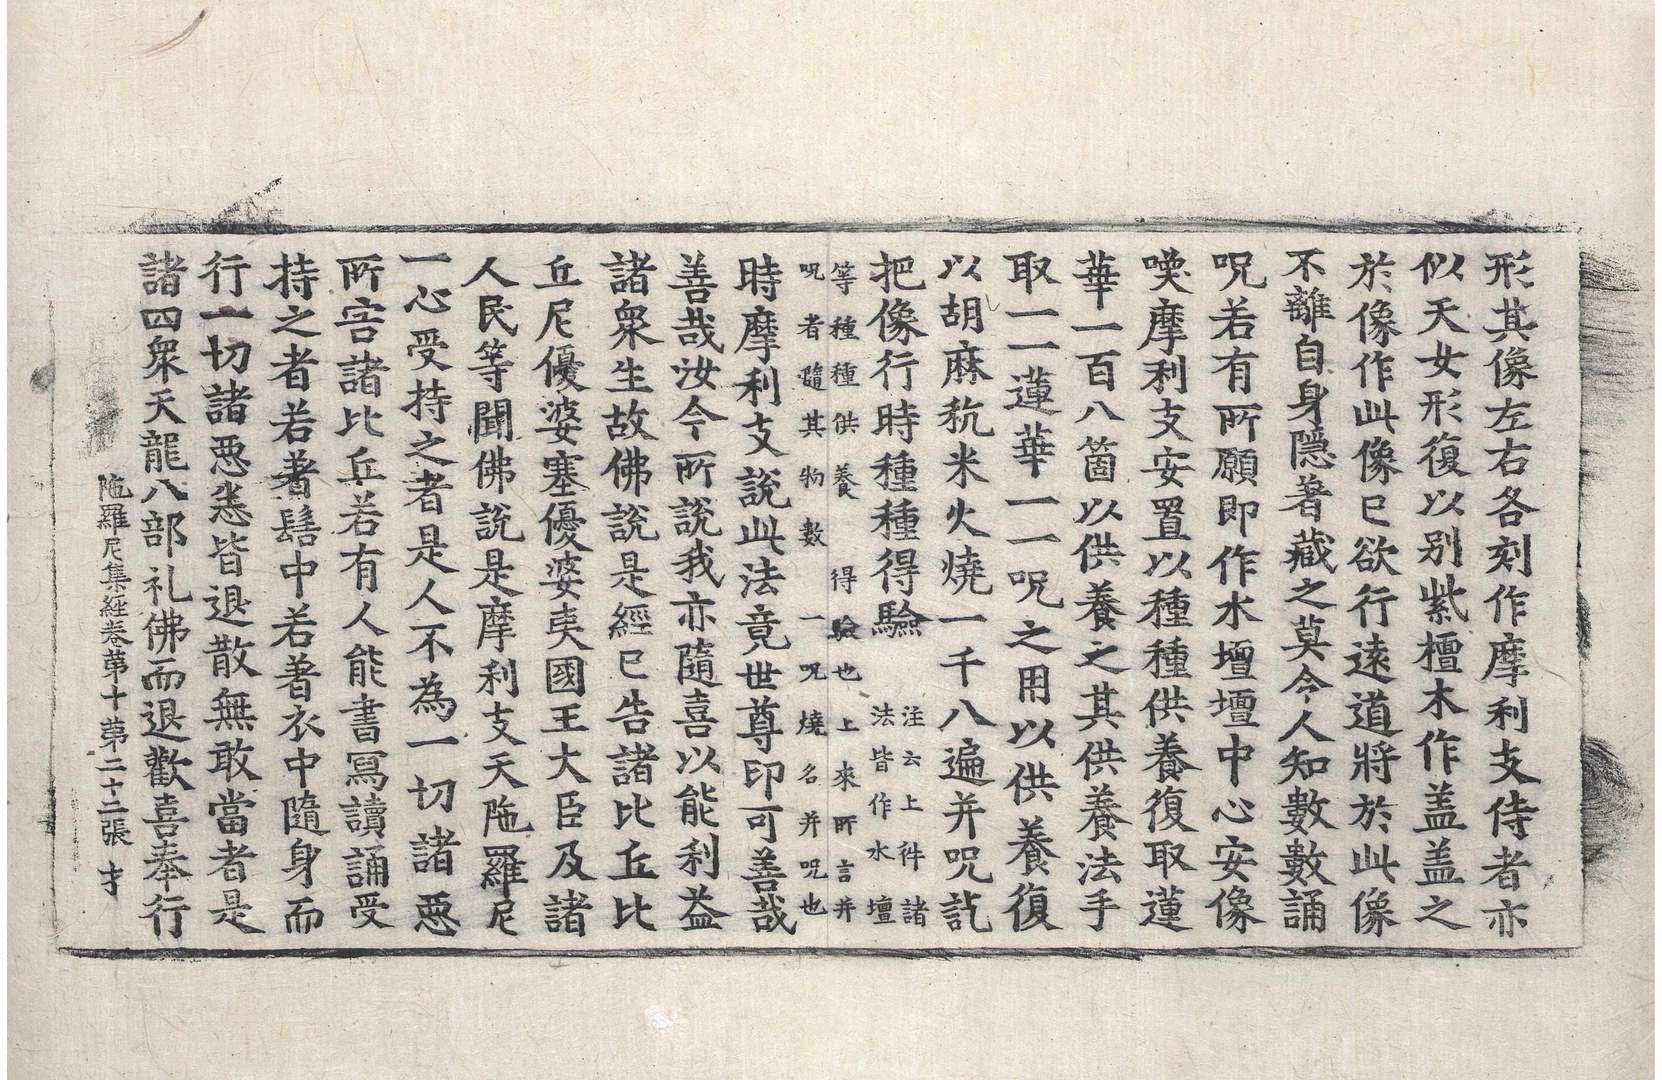 形其像左右各刻作摩利支侍者亦
似天女形復以别紫檀木作盖盖之
於像作此像已欲行遠道將於此像
不離自身隱著藏之莫令人知數數誦
呪若有所願即作水壇壇中心安像
喚摩利支安置以種種供養復取蓮
華一百八箇以供養之其供養法手
取一一蓮華一一呪之用以供養復
以胡麻秔米火燒一千八遍并呪訖
把像行時種種得驗
注云上件諸
法皆作水壇
等種種供養得驗也上來所言并
呪者隨其物數一呪燒名并呪也
時摩利支說此法竟世尊印可善哉
善哉汝今所說我亦隨喜以能利益
諸衆生故佛說是經已告諸比丘比
丘尼優婆塞優婆夷國王大臣及諸
人民等聞佛說是摩利支天陁羅尼
一心受持之者是人不為一切諸惡
所害諸比丘若有人能書寫讀誦受
持之者若著髻中若著衣中隨身而
行一切諸惡悉皆退散無敢當者是
諸四衆天龍八部礼佛而退歡喜奉行
陁羅尼集經卷第十 第二十二張 才